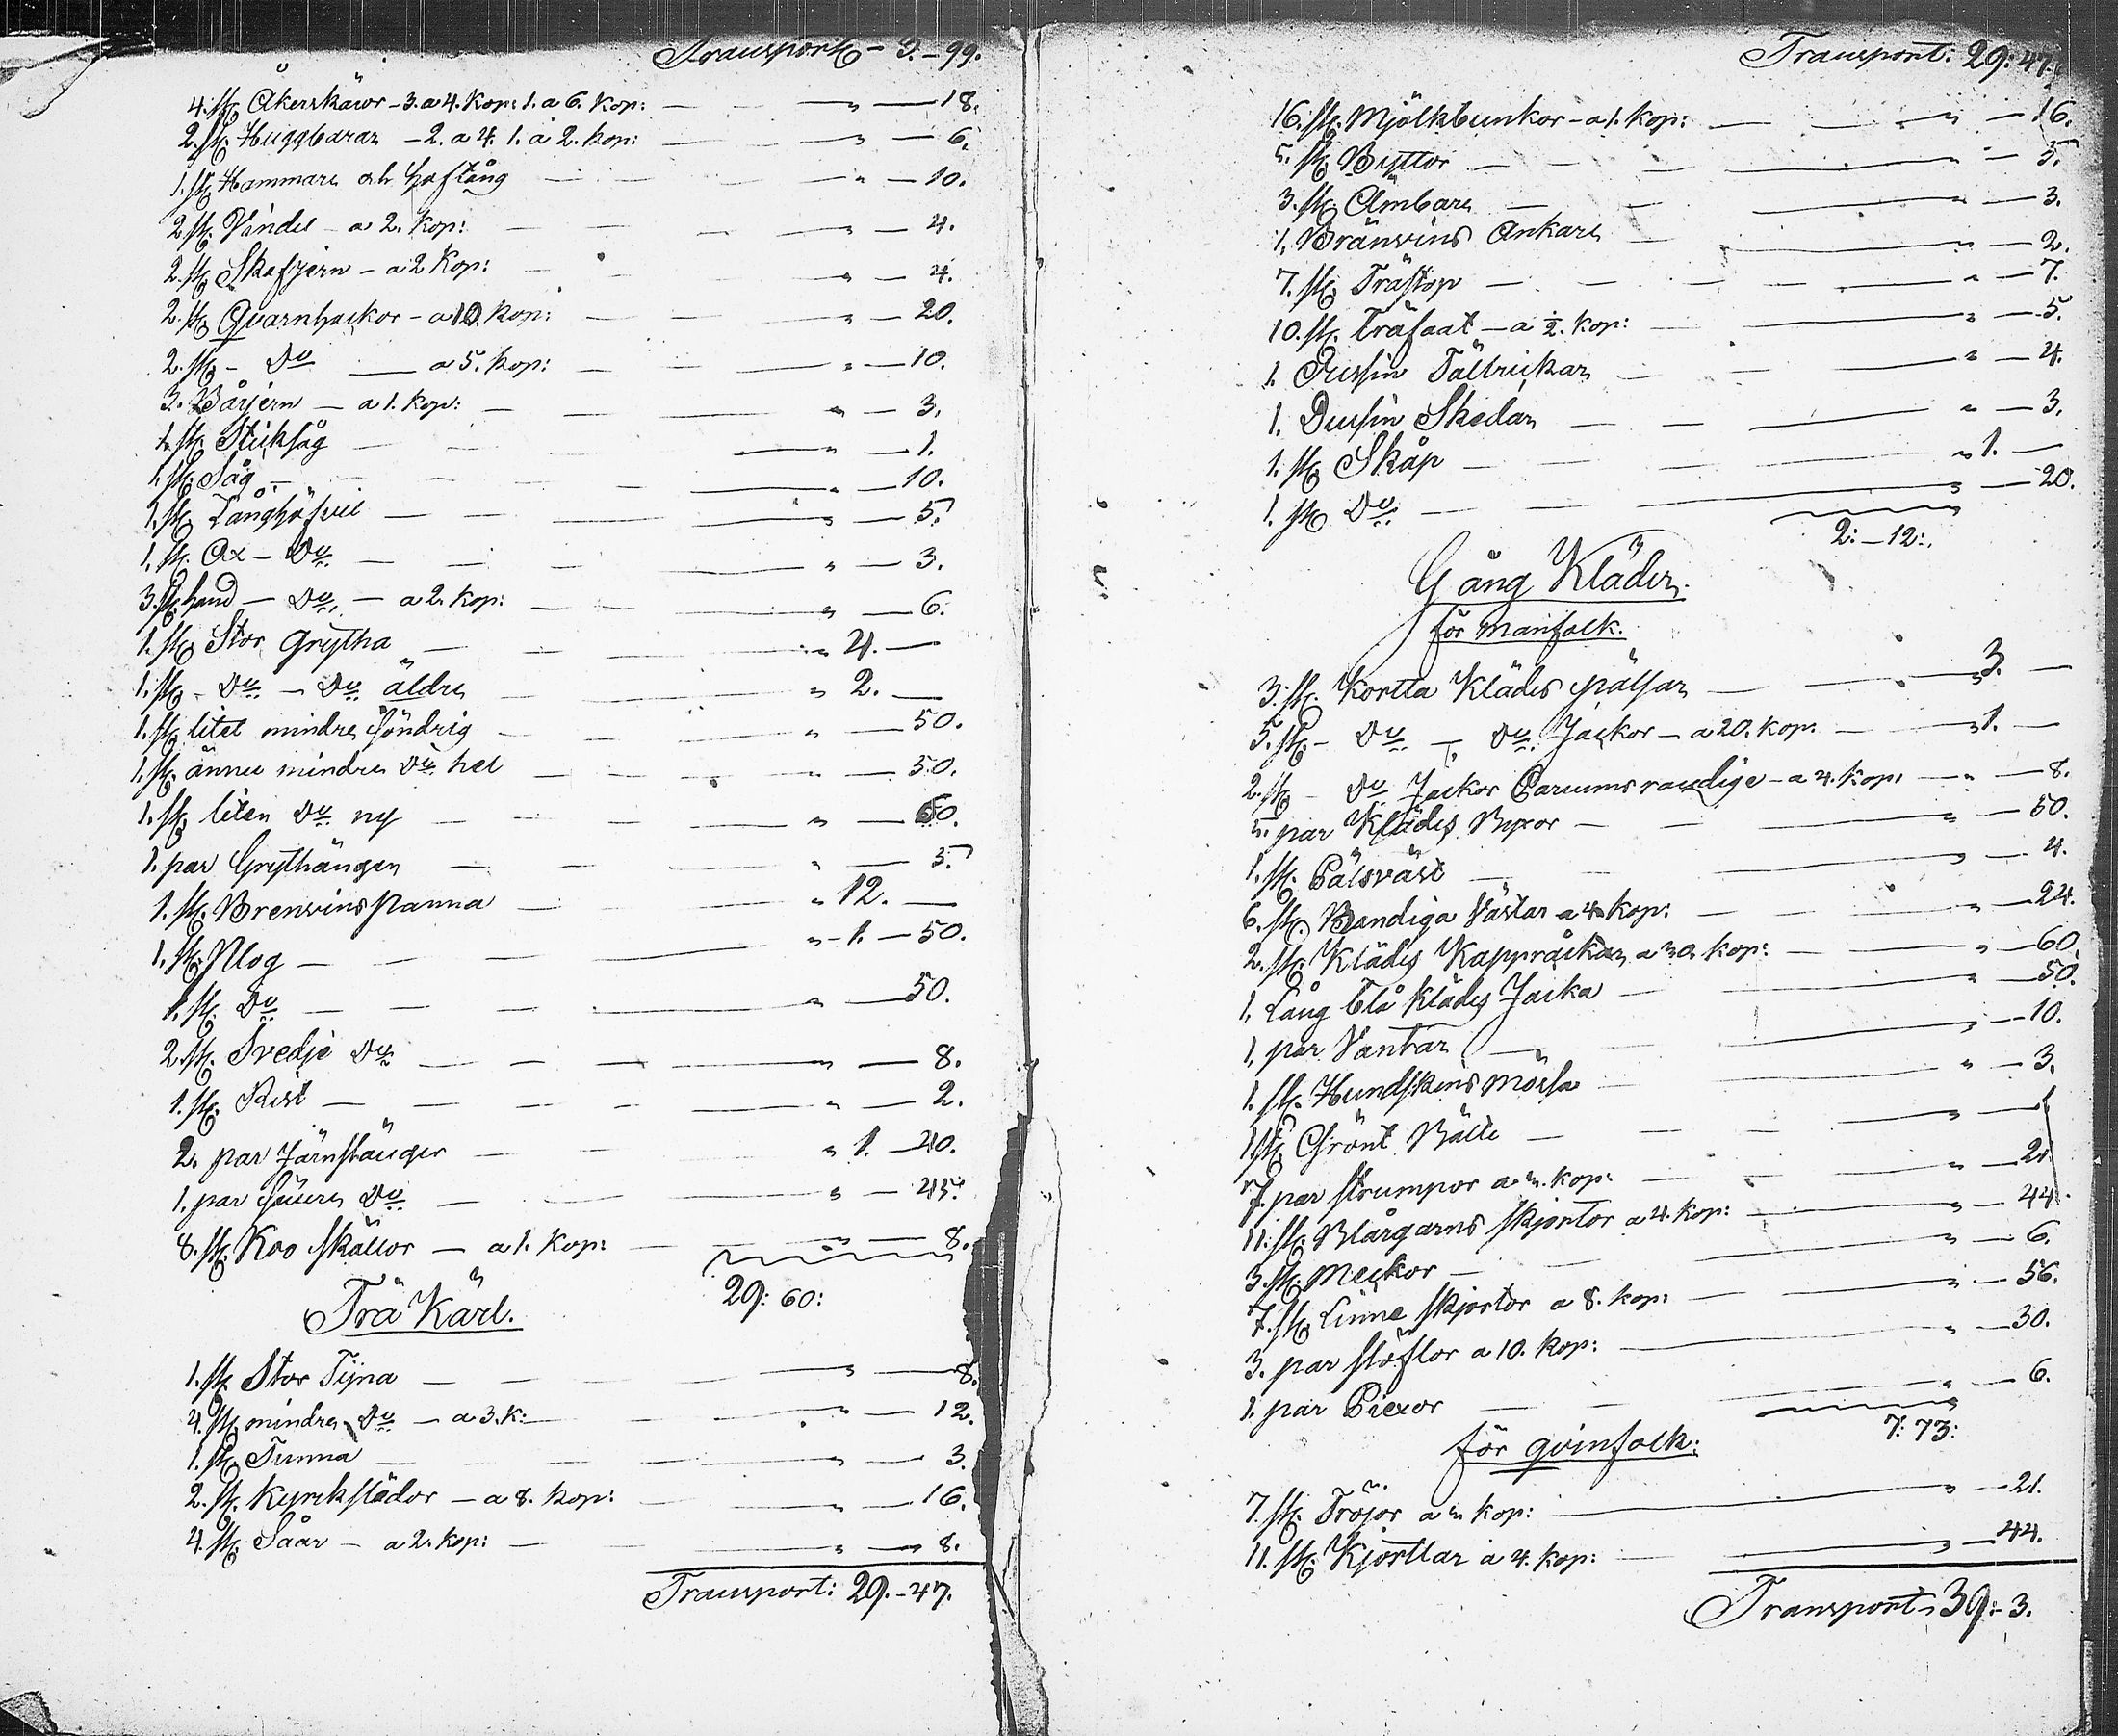 Transport - 3.-99.
4. st. Åkerskäror - 3. a 4. Kop: 1. a 6. Kop: — " — 18.
2. st. Huggbarar - 2. a 4. 1. a 2. kop: — " — 6.
1. st. Hammare och hoftång — " — 10.
2 st. Vindel - a 2. Kop: — " — 4.
2. st. Skafjern - a 2 Kop: — " — 4.
2. st. Qvarnhackor - a 10. Kop: — " — 20.
2. st. - Do — a 5. kop: — " — 10.
3. Bårjern — a 1. Kop: — " — 3.
1. st. Sticksåg — " — 1.
1. st. Såg — " — 10.
1. st. Långhöfvel — " — 5.
1. st. Ax - Do — " — 3.
3. st. hand — Do — a 2. Kop: — " — 6.
1. st. Stor Grytha — " 4. —
1. st. - Do - Do äldre — " 2. —
1. st. litet mindre söndrig — " — 50.
1. st. ännu mindre Do hel — " — 50.
1. st. liten Do ny — " — 60.
1. par Grythängen — " — 5.
1. st. Brenvins Panna — " 12. —
1. st. Plog — " - 1. — 50.
1. st. Do — " — 50.
2. st. Svedje Do — " — 8.
1. st. Rist — " — 2.
2. par Järnstänger — " 1. — 20.
1. par Do — " — 45.
8. st. Koo skällor — a 1. Kop: — " — 8.
29: 60:
Trä Kärl.
1. st. Stor Tijna — " — 8.
4. st. mindre Do — a 3. K: — " — 12.
1. st. Tunna — " — 3.
2. st. Kyrckslädor — a 8. kop: — " — 16.
4. st. Såar — a 2. kop: — " — 8.
Transport: 29.-47.
Transport: 29:47.
16. st. Mjölkbunkor - a 1. Kop: — " — 16.
5. st. Byttor — " — 5.
3. st. Ämbare — " — 3.
1. Bränvins Ankare — " — 2.
7. st. Trästop — " — 7.
10. st. träfaat — a ½. Kop: — " — 5.
1. Dussin Tältrickar — " — 4.
1. Dussin Skedar — " — 3.
1. st. Skåp — " 1. —
1. st. Do — " — 20.
2:-12:
Gång Kläder.
för manfolk.
3. st. Kortta Klädes pälsar — " 3. —
5. st. - Do — Do Jackor — a 20. kop: — " 1. —
2. st. - Do Jackor randige - a 4. kop: — " — 8.
5. par Klädes Byxor — " — 50.
1. st. Pälsväst — " — 4.
6. st. Randiga Västar a 4 kop: — " — 24.
2. st. Klädes Kappråckar a 30. kop: — " — 60.
1. Lång blå Klädes Jacka — " — 50.
1. par Vantar — " — 10.
1. st. Hundskins Mössa — " — 3.
1. st. Grönt Bälte — " — 1
7. par strumpor a 3. kop: — " — 21
11. st. Blårgarns skjortor a 4. kop: — " — 44.
3. st. Meckor — " — 6.
7. st. Linne skjortor a 8. kop: — " — 56.
3. par stöflor a 10. kop: — " — 30.
1. par Piexor — " — 6.
7: 73:
för qvinfolk:
7. st. Tröjor a 3 kop: — " — 21.
11. st. Kjortlar a 4. kop: — " — 44.
Transport 39:-3.